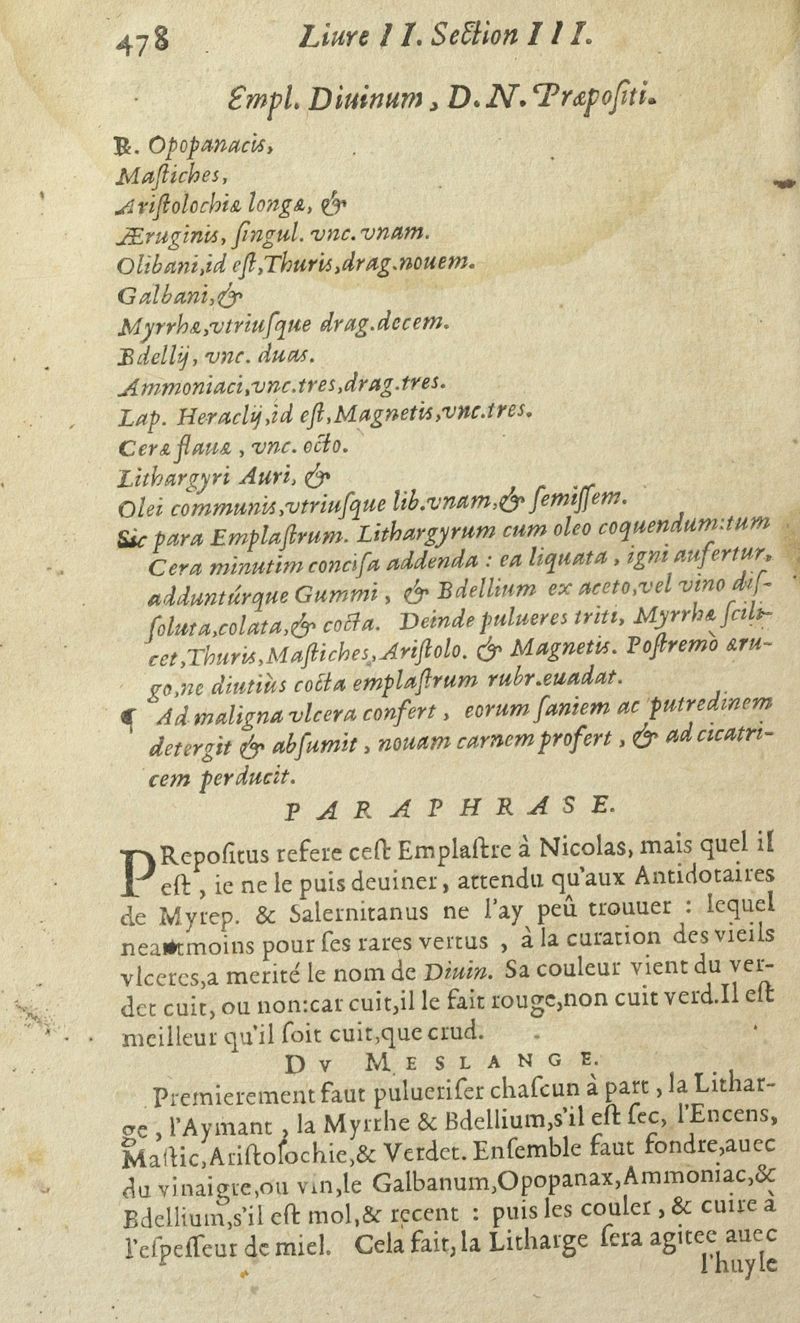 478 Liure II. Section III.
Empl. Diuinum, D. N. Præpositi.
℞. Opopanacis,
Mastiches,
Aristolochiæ longæ, &
Æruginis, singul. vnc. vnam.
Olibani,id est,Thuris,drag.nouem.
Galbani,&
Myrrhæ,vtriusque drag.decem.
Bdellij, vnc. duas.
Ammoniaci,vnc.tres,drag.tres.
Lap. Heraclij,id est,Magnetis,vnc.tres.
Ceræ flauæ , vnc. octo.
Lithargyri Auri, &
Olei communis,vtriusque lib.vnam,& semissem.
Sic para Emplastrum. Lithargyrum cum oleo coquendum:tum
Cera minutim concisa addenda : ea liquata , igni aufertur,
adduntúrque Gummi , & Bdellium ex aceto,vel vino dis-
soluta,colata,& cocta. Deinde pulueres triti, Myrrhæ scili-
cet,Thuris,Mastiches,Aristolo. & Magnetis. Postremò æru-
go,ne diutiùs cocta emplastrum rubr.euadat.
¶ Ad maligna vlcera confert , eorum saniem ac putredinem
detergit & absumit , nouam carnem profert , & ad cicatri-
cem perducit.
PARAPHRASE.
PRepositus refere cest Emplastre à Nicolas, mais quel il
est , ie ne le puis deuiner, attendu qu'aux Antidotaires
de Myrep. & Salernitanus ne l'ay peû trouuer : lequel
neatmoins pour ses rares vertus , à la curation des vieils
vlceres,a merité le nom de Diuin. Sa couleur vient du ver-
det cuit, ou non:car cuit,il le fait rouge,non cuit verd.Il est
meilleur qu'il soit cuit,que crud.
DV MESLANGE.
Premierement faut puluerifer chascun à part , la Lithar-
ge , l'Aymant , la Myrrhe & Bdellium,s'il est sec, l'Encens,
Mastic,Aristolochie,& Verdet. Ensemble faut fondre,auec
du vinaigre,ou vin,le Galbanum,Opopanax,Ammoniac,&
Bdellium,s'il est mol,& recent : puis les couler , & cuire à
l'espesseur de miel. Cela fait, la Litharge sera agitee auec
l'huyle